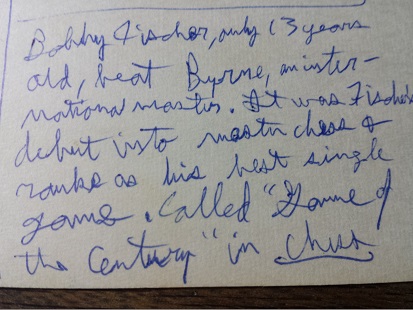 Bobby Fischer, only 13 years
old, beat Byrne, an inter-
national master. It was Fischer's
debut into master chess &
ranks as his best single
game. Called "Game of
the Century" in chess